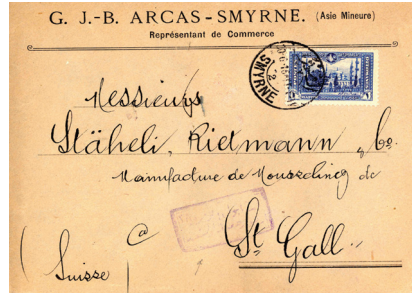 G. J.-B. ARCAS - SMYRNE. (Asie Mineure)
Représentant de Commerce
SMYRNE
Messieurs
Stäheli, Rietmann & Co.
Manufacture de Mousselines de
à St Gall.
(Suisse)